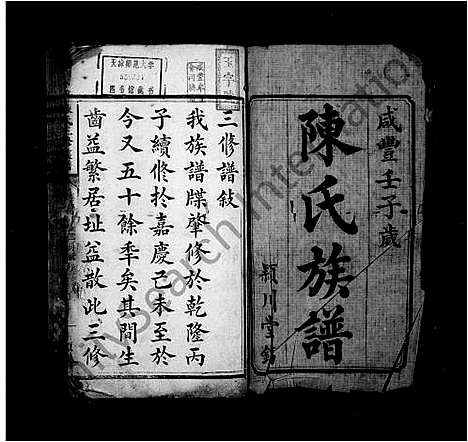 咸豐壬子歲
陳氏族譜
潁川堂鐫
三修譜敍
我族譜牒肇修於乾隆丙
子續修於嘉慶己未至於
今又五十餘秊矣其間生
齒益繁居址益散此三修